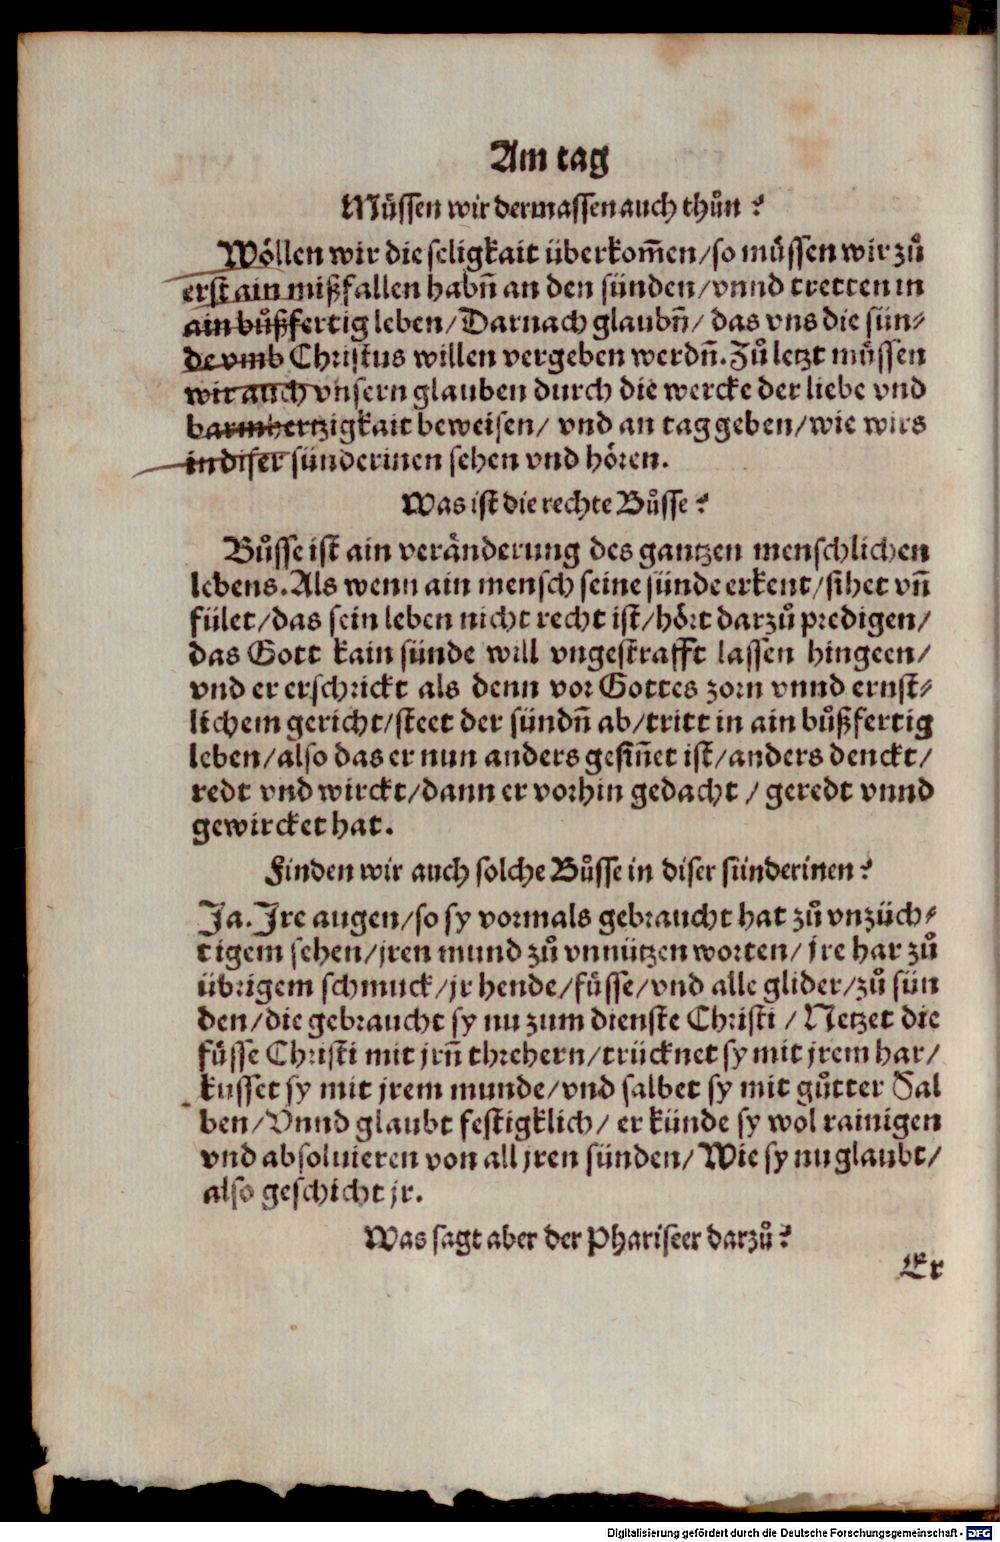 Am tag
Müssen wir dermassen auch thůn?
Wöllen wir die seligkait überkom̄en/so müssen wir zů
erst ain mißfallen habn̄ an den sünden/vnnd tretten in
ain bůßfertig leben/Darnach glaubn̄/ das vns die sün⸗
de vmb Christus willen vergeben werdn̄. Zů letzt müssen
wir auch vnsern glauben durch die wercke der liebe vnd
barmhertzigkait beweisen/ vnd an tag geben/wie wirs
in diser sünderinen sehen vnd hören.
Was ist die rechte Bůsse?
Bůsse ist ain veränderung des gantzen menschlichen
lebens. Als wenn ain mensch seine sünde erkent/sihet vn̄
fület/das sein leben nicht recht ist/hört darzů predigen/
das Gott kain sünde will vngestrafft lassen hingeen/
vnd er erschrickt als denn vor Gottes zorn vnnd ernst⸗
lichem gericht/steet der sündn̄ ab/tritt in ain bůßfertig
leben/also das er nun anders gesin̄et ist/anders denckt/
redt vnd wirckt/dann er vorhin gedacht / geredt vnnd
gewircket hat.
Finden wir auch solche Bůsse in diser sünderinen?
Ja. Jre augen/so sy vormals gebraucht hat zů vnzüch⸗
tigem sehen/jren mund zů vnnützen worten/ jre har zů
übrigem schmuck/jr hende/füsse/vnd alle glider/zů sün
den/die gebraucht sy nu zum dienste Christi / Netzet die
füsse Christi mit jrn̄ threhern/trücknet sy mit jrem har/
kusset sy mit jrem munde/vnd salbet sy mit gůtter Sal
ben/Vnnd glaubt festigklich/ er künde sy wol rainigen
vnd absoluieren von all jren sünden/Wie sy nu glaubt/
also geschicht jr.
Was sagt aber der Phariseer darzů?
Er
Digitalisierung gefördert durch die Deutsche Forschungsgemeinschaft - DFG